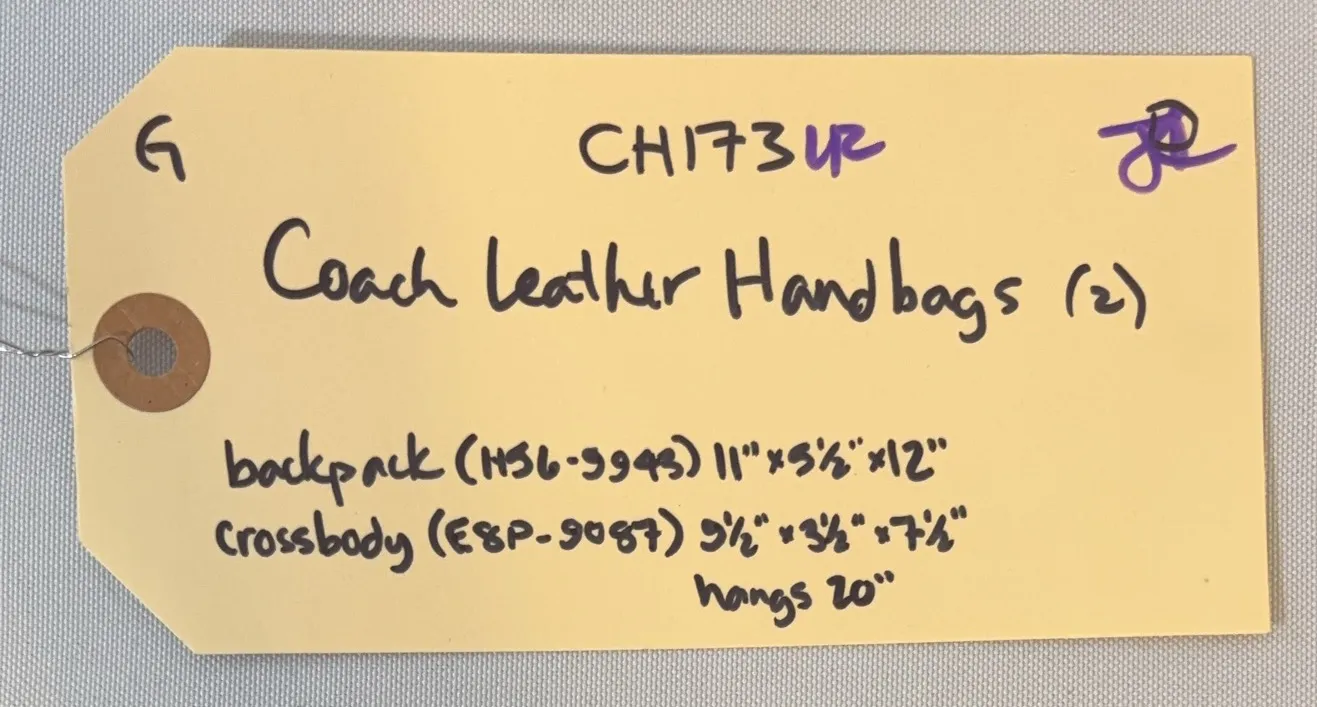 G CH173UR
Coach Leather Handbags (2)
backpack (H56-9945) 11" x 5½" x 12"
crossbody (E8P-9087) 9½" x 3½" x 7½"
hangs 20"